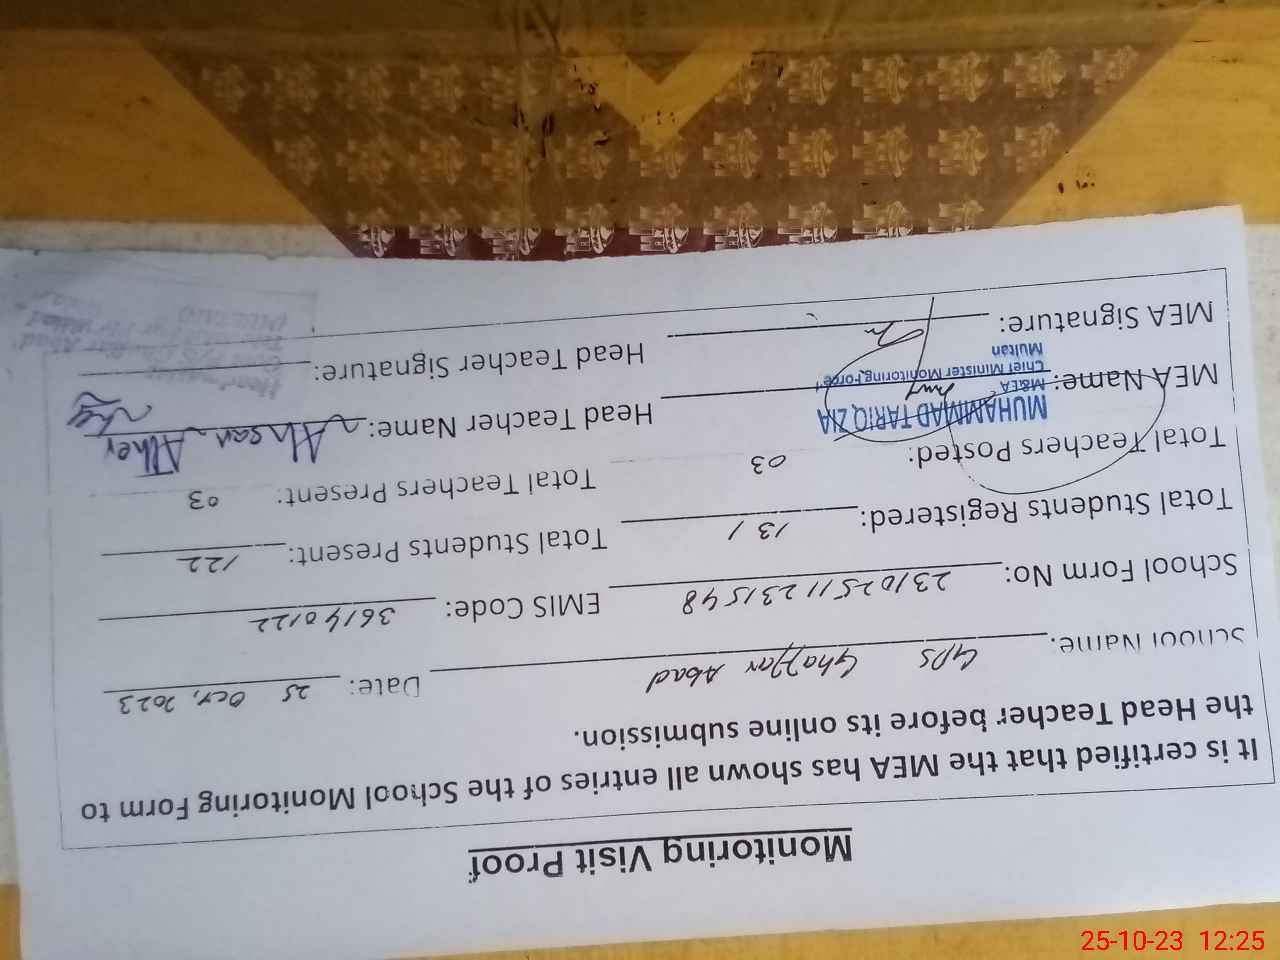 Monitoring Visit Proof
It is certified that the MEA has shown all entries of the School Monitoring Form to
the Head Teacher before its online submission.
School Name: GPS Ghazzar Abad Date: 25 Oct, 2023
School Form No: 231025112231548 EMIS Code: 36140122
Total Students Registered: 131 Total Students Present: 122
Total Teachers Posted: 03 Total Teachers Present: 03
MEA Name: Head Teacher Name: Ahsan Ather
MUHAMMAD TARIQ ZIA
M&EA
Chief Minister Monitoring Force
Multan
MEA Signature: Head Teacher Signature:
Headmaster
25-10-23 12:25